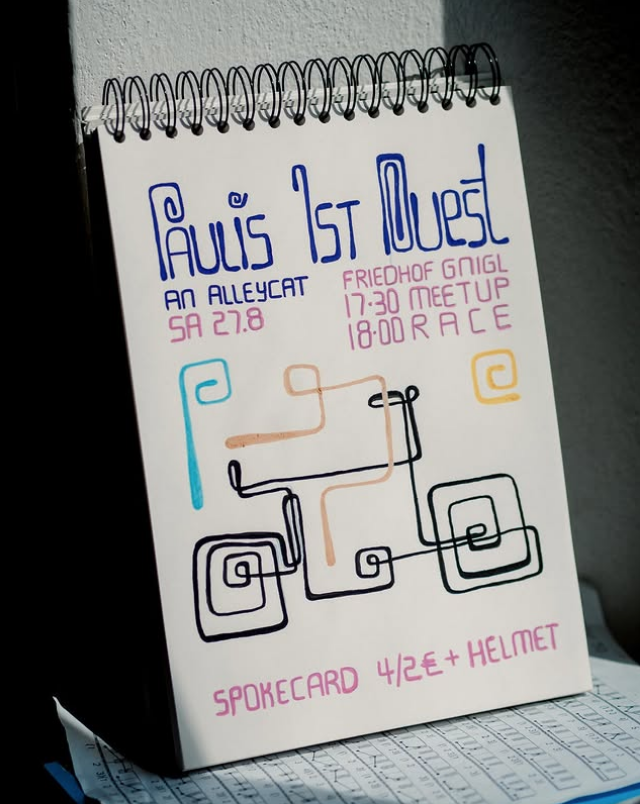 PAULIS 1ST QUEST
AN ALLEYCAT
SA 27.8
FRIEDHOF GNIGL
17·30 MEETUP
18·00 RACE
SPOKECARD 4/2€ + HELMET